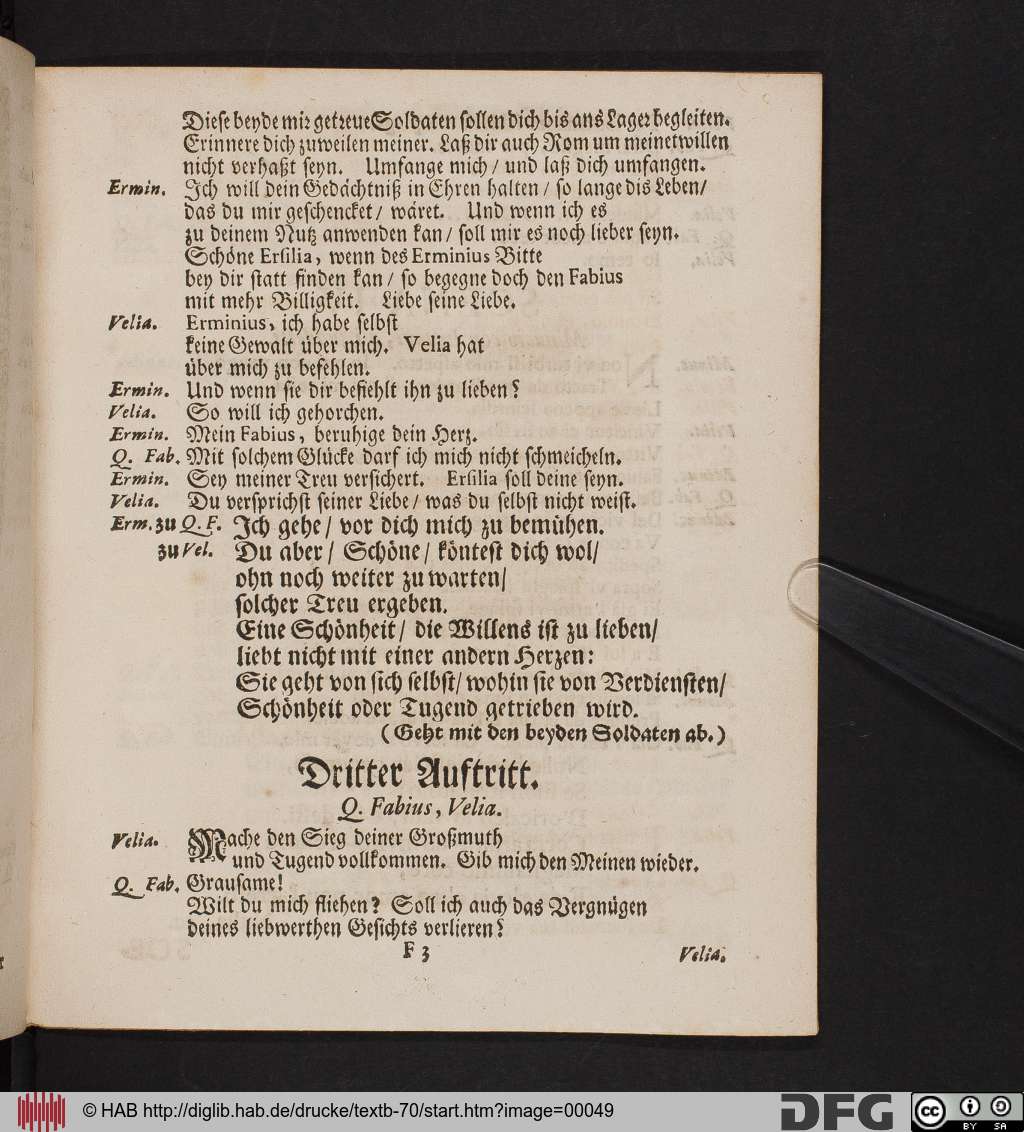 Diese beyde mir getreue Soldaten sollen dich bis ans Lager begleiten.
Erinnere dich zuweilen meiner. Laß dir auch Rom um meinetwillen
nicht verhaßt seyn. Umfange mich / und laß dich umfangen.
Ermin. Ich will dein Gedächtniß in Ehren halten / so lange dis Leben /
das du mir geschencket / wäret. Und wenn ich es
zu deinem Nutz anwenden kan / soll mir es noch lieber seyn.
Schöne Ersilia, wenn des Erminius Bitte
bey dir statt finden kan / so begegne doch den Fabius
mit mehr Billigkeit. Liebe seine Liebe.
Velia. Erminius, ich habe selbst
keine Gewalt über mich. Velia hat
über mich zu befehlen.
Ermin. Und wenn sie dir befiehlt ihn zu lieben?
Velia. So will ich gehorchen.
Ermin. Mein Fabius, beruhige dein Herz.
Q. Fab. Mit solchem Glücke darf ich mich nicht schmeicheln.
Ermin. Sey meiner Treu versichert. Ersilia soll deine seyn.
Velia. Du versprichst seiner Liebe / was du selbst nicht weist.
Erm. zu Q. F. Ich gehe / vor dich mich zu bemühen.
zu Vel. Du aber / Schöne / köntest dich wol /
ohn noch weiter zu warten /
solcher Treu ergeben.
Eine Schönheit / die Willens ist zu lieben /
liebt nicht mit einer andern Herzen:
Sie geht von sich selbst / wohin sie von Verdiensten /
Schönheit oder Tugend getrieben wird.
(Geht mit den beyden Soldaten ab.)
Dritter Auftritt.
Q. Fabius, Velia.
Velia. Mache den Sieg deiner Großmuth
und Tugend vollkommen. Gib mich den Meinen wieder.
Q. Fab. Grausame!
Wilt du mich fliehen? Soll ich auch das Vergnügen
deines liebwerthen Gesichts verlieren?
F 3 Velia.
© HAB http://diglib.hab.de/drucke/textb-70/start.htm?image=00049
DFG
cc BY SA